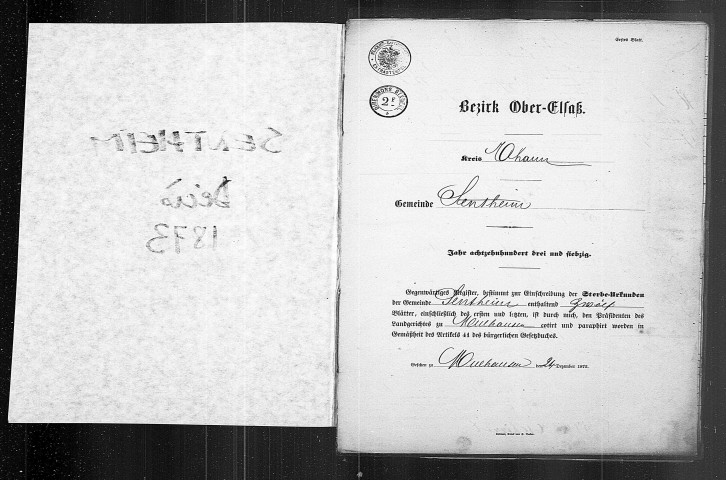 SENTHEIM
Décès
1873
Erstes Blatt.
2F
Bezirk Ober-Elsaß.
Kreis Thann
Gemeinde Sentheim
Jahr achtzehnhundert drei und siebzig.
Gegenwärtiges Register, bestimmt zur Einschreibung der Sterbe-Urkunden
der Gemeinde Sentheim enthaltend zwölf
Blätter, einschließlich des ersten und letzten, ist durch mich, den Präsidenten des
Landgerichtes zu Mülhausen cotirt und paraphirt worden in
Gemäßheit des Artikels 41 des bürgerlichen Gesetzbuches.
Gesehen zu Mülhausen den 24 Dezember 1872.